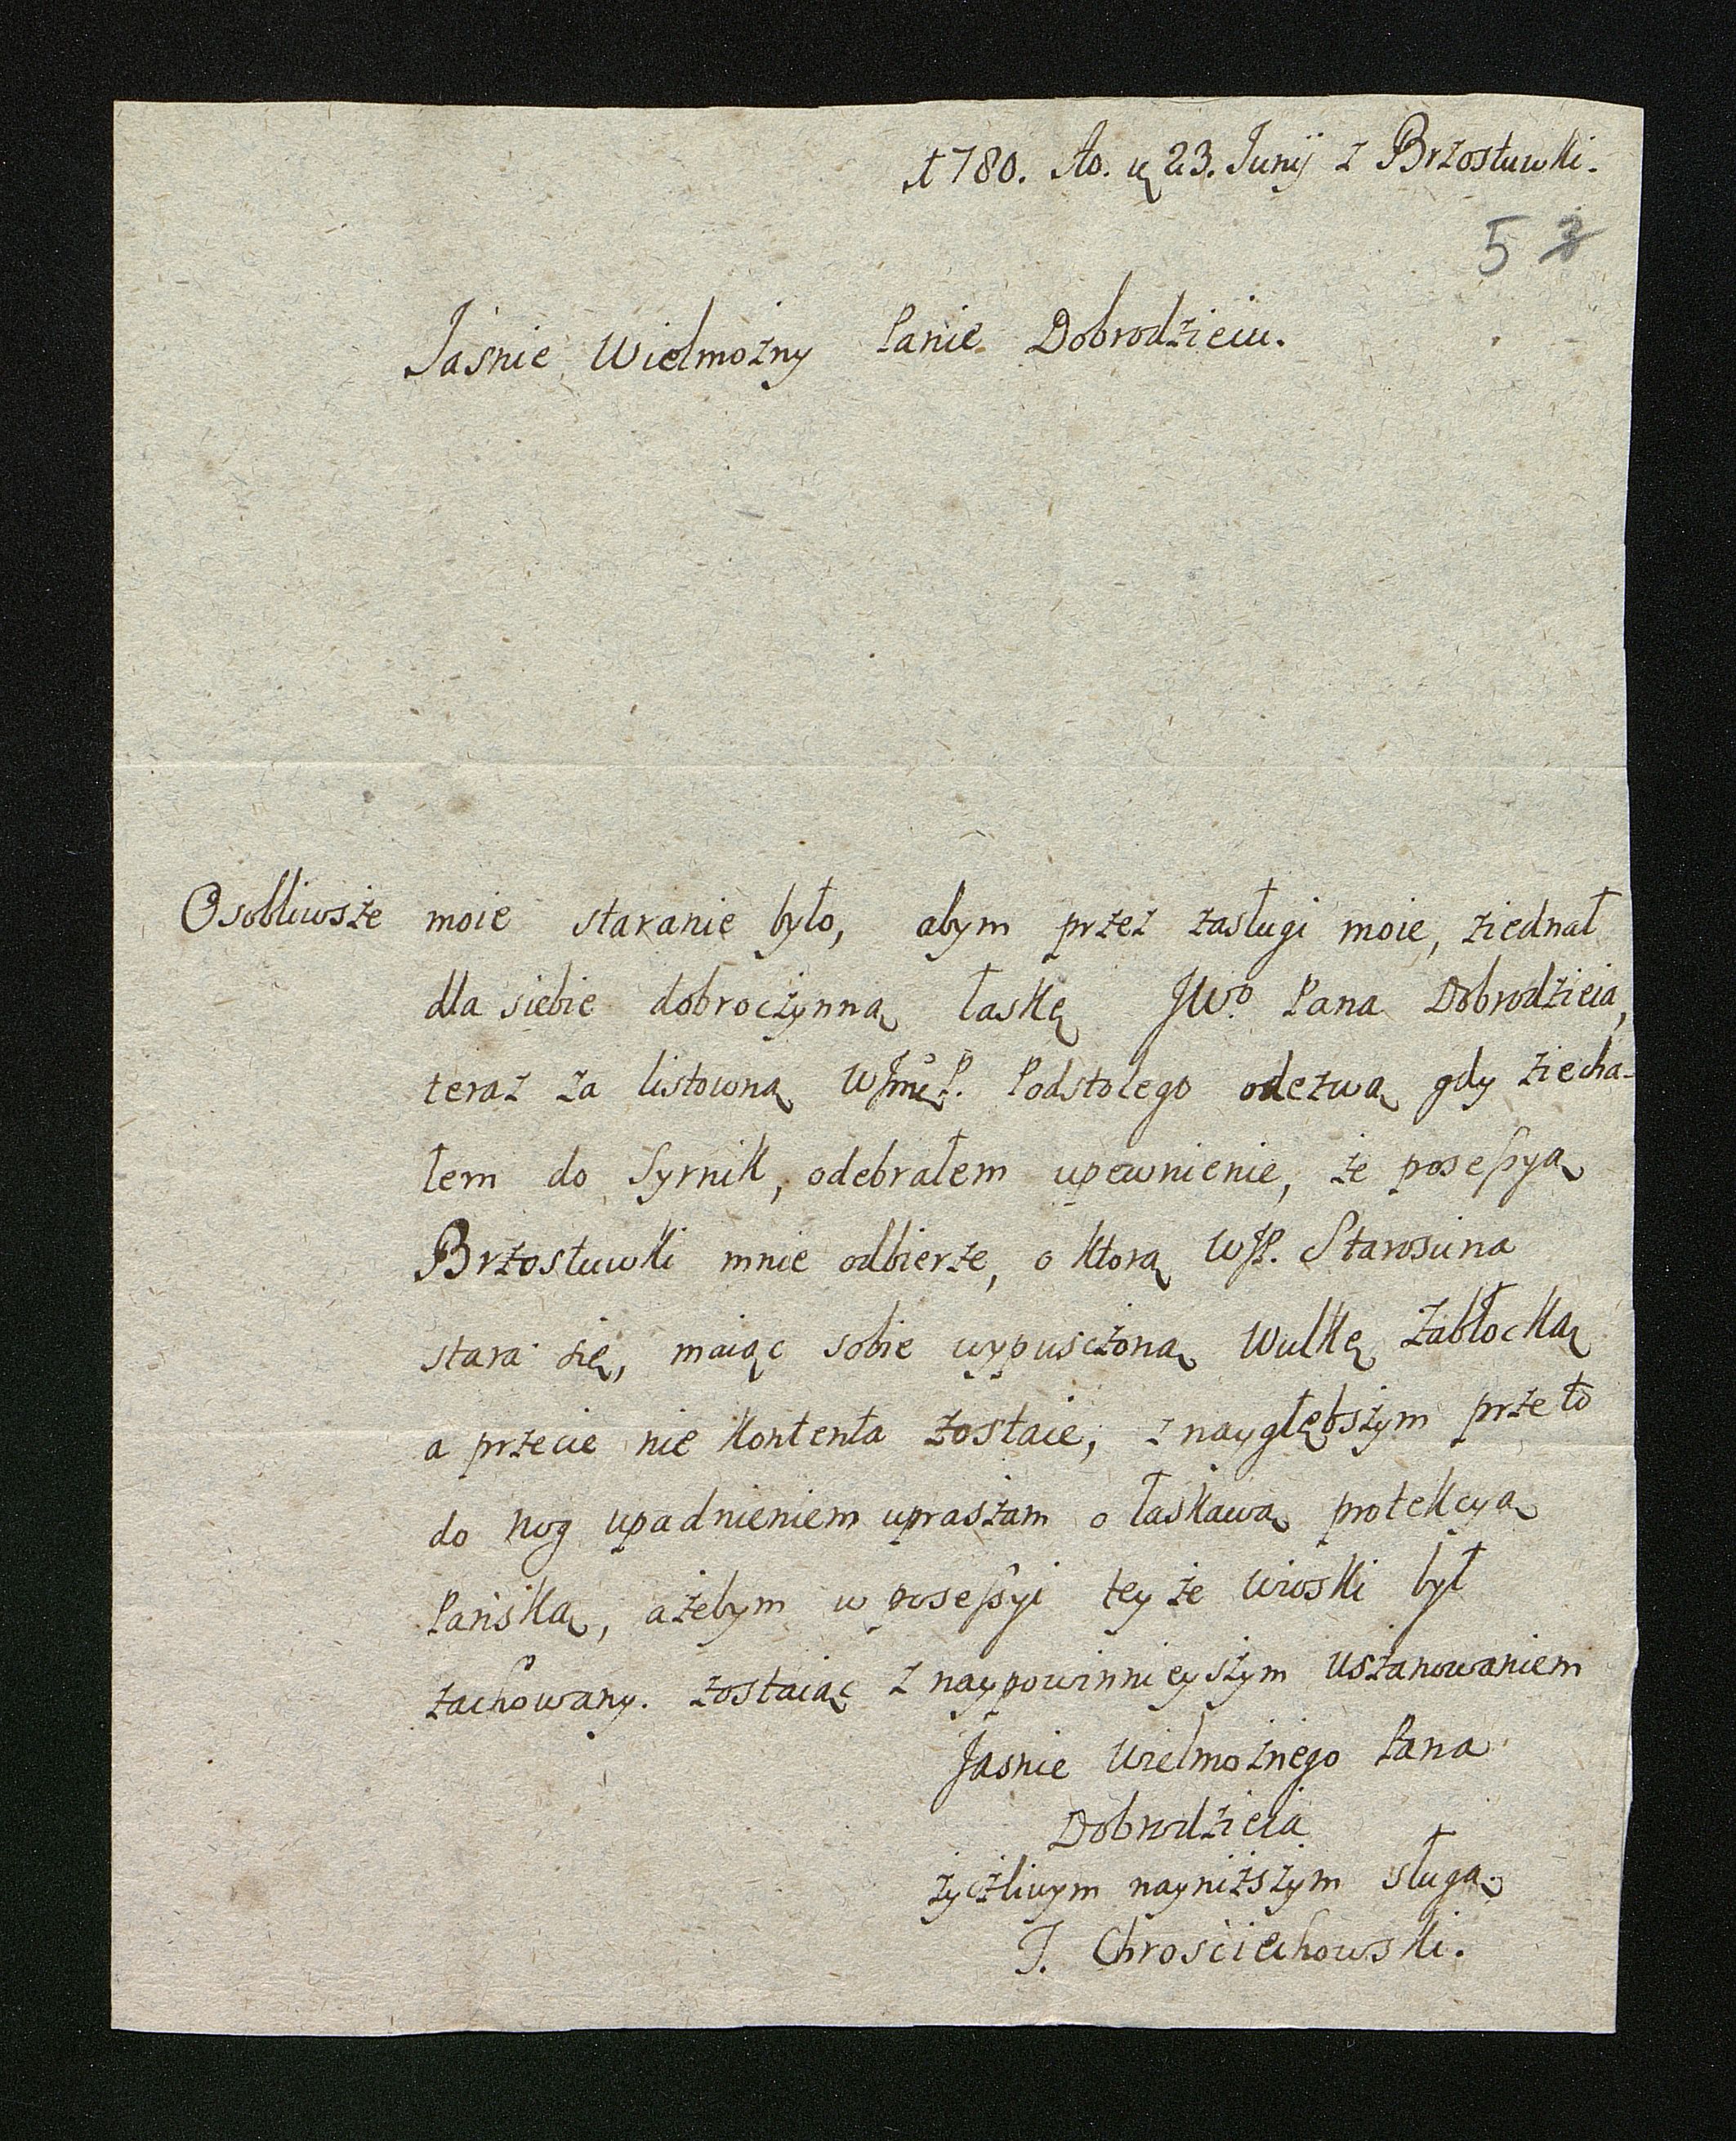 1780. Ao. d 23. Junij z Brzostuwki.
5
Jasnie Wielmożny Panie Dobrodzieiu.
Osobliwsze moie staranie było, abym przez zasługi moie, ziednał
dla siebie dobroczynną łaskę JWo. Pana Dobrodzieia,
teraz za listowną WJmć P. Podstolego odezwą gdy ziecha-
łem do Syrnik, odebrałem upewnienie, że poseſsyą
Brzostuwki mnie odbierze, o ktorą WJP. Starosina
stara się, maiąc sobie wypusczoną Wulkę Zabłocką
a przecie nie kontenta zostaie, z naygłębszym przeto
do nog upadnieniem upraszam o łaskawą protekcyą
Pańską, ażebym w poseſsyi teyże wioski był
zachowany. zostaiąc z naypowinnieyszym uszanowaniem
Jasnie Wielmożnego Pana
Dobrodzieia
życzliwym nayniższym sługą.
J. Chrościechowski.